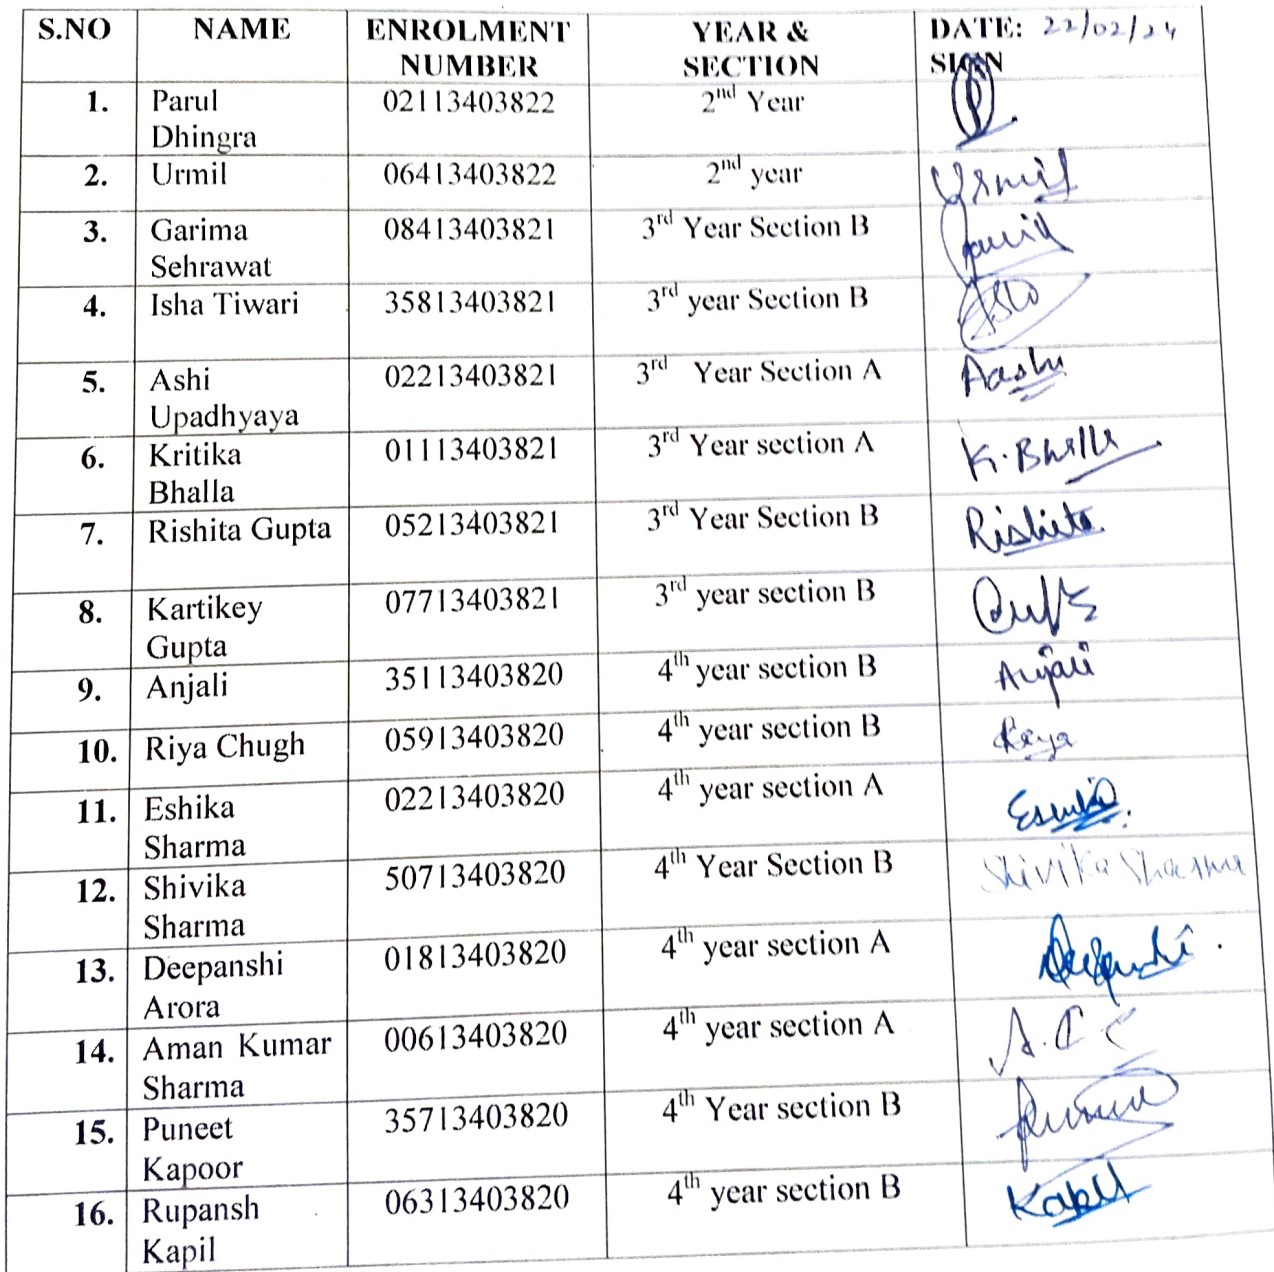 S.NO NAME ENROLMENT NUMBER YEAR & SECTION DATE: 22/02/24 SIGN
1. Parul Dhingra 02113403822 2nd Year
2. Urmil 06413403822 2nd year Urmil
3. Garima Sehrawat 08413403821 3rd Year Section B
4. Isha Tiwari 35813403821 3rd year Section B
5. Ashi Upadhyaya 02213403821 3rd Year Section A Aashi
6. Kritika Bhalla 01113403821 3rd Year section A K. Bhalla
7. Rishita Gupta 05213403821 3rd Year Section B Rishita
8. Kartikey Gupta 07713403821 3rd year section B
9. Anjali 35113403820 4th year section B Anjali
10. Riya Chugh 05913403820 4th year section B Riya
11. Eshika Sharma 02213403820 4th year section A Eshika
12. Shivika Sharma 50713403820 4th Year Section B Shivika Sharma
13. Deepanshi Arora 01813403820 4th year section A Deepanshi
14. Aman Kumar Sharma 00613403820 4th year section A
15. Puneet Kapoor 35713403820 4th Year section B
16. Rupansh Kapil 06313403820 4th year section B Kapil